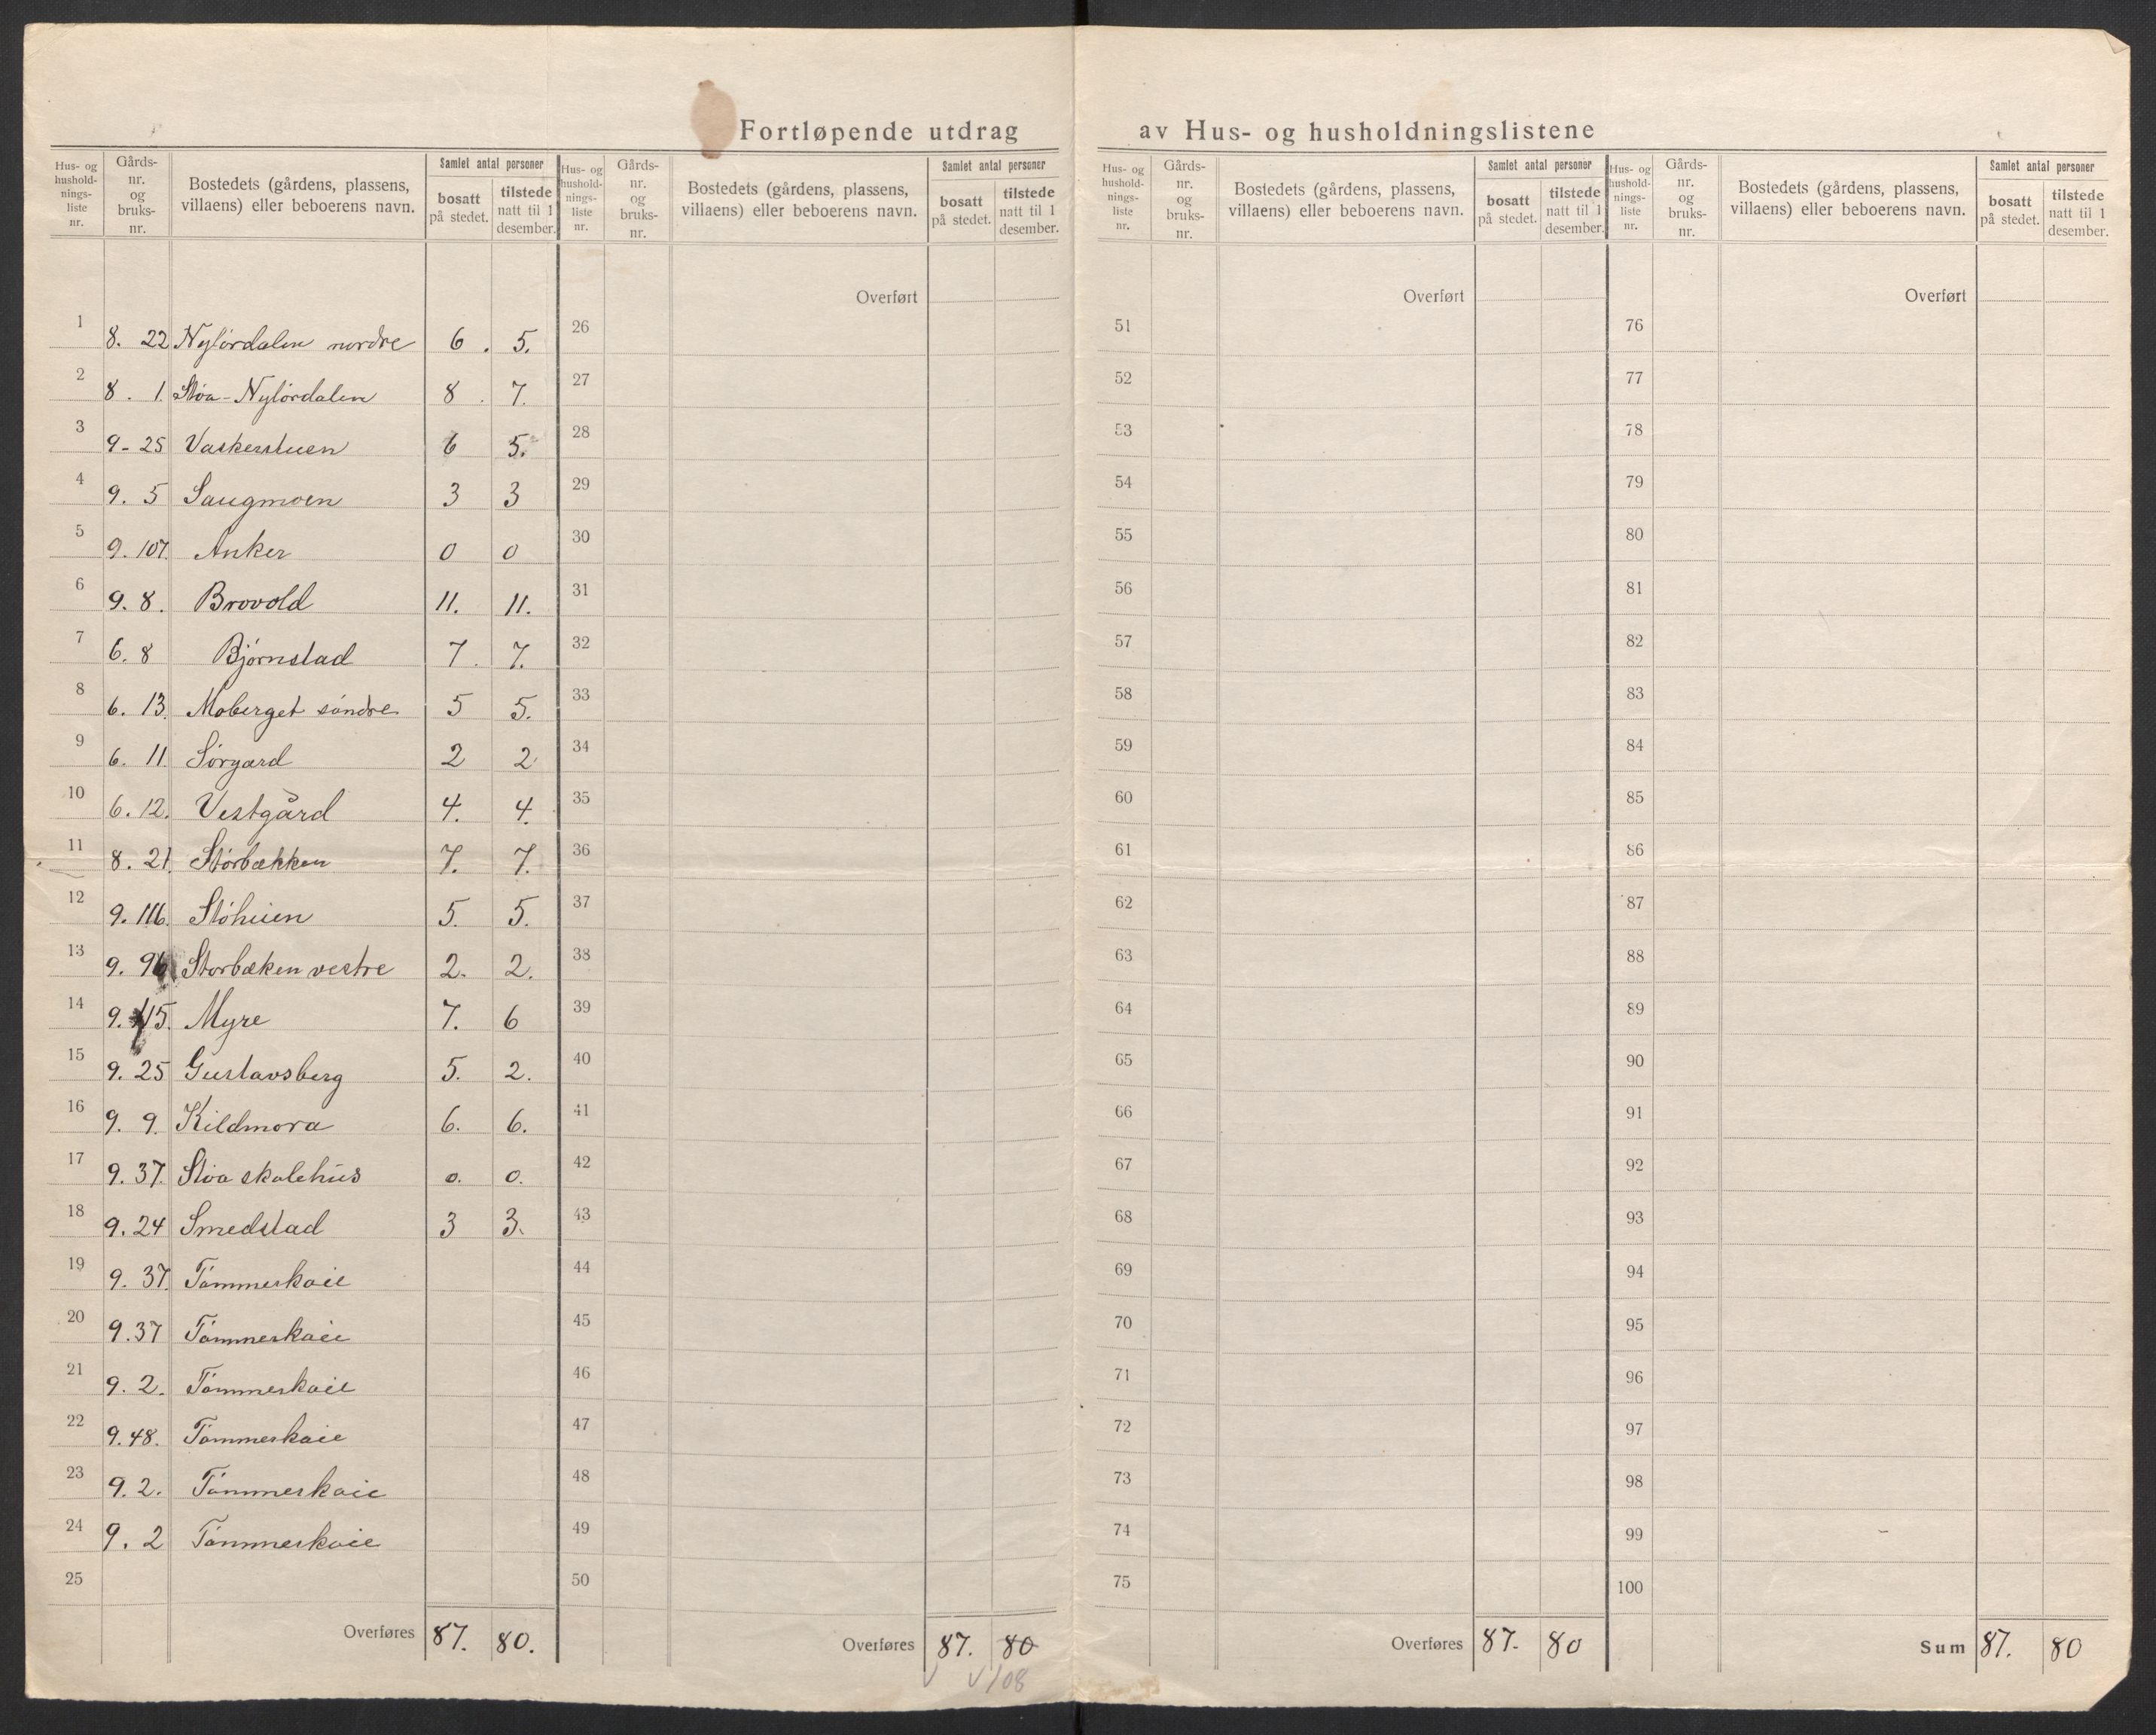 Fortløpende utdrag av Hus- og husholdningslistene
Hus- og husholdningsliste nr. | Gårdsnr. og bruksnr. | Bostedets (gårdens, plassens, villaens) eller beboerens navn. | Samlet antal personer | bosatt på stedet. | tilstede natt til 1 desember.
1 8. 22 Nylördalen nordre 6. 5.
2 8. 1. Støa-Nylördalen 8. 7.
3 9-25 Vaskerstuen 6 5.
4 9. 5 Saugmoen 3 3
5 9. 107. Anker 0 0
6 9. 8. Brovold 11. 11.
7 6. 8 Bjørnstad 7. 7.
8 6. 13. Moberget söndre 5 5.
9 6. 11. Sörgard 2 2
10 6. 12. Vestgård 4. 4.
11 8. 21. Störbækken 7. 7.
12 9. 116. Stöheien 5. 5.
13 9. 96 Storbæken vestre 2. 2.
14 9. 45. Myre 7. 6
15 9. 25 Gustavsberg 5. 2.
16 9. 9. Kildmora 6. 6.
17 9. 37. Støa skolehus 0. 0.
18 9. 24 Smedstad 3 3.
19 9. 37. Tömmerkoie
20 9. 37 Tömmerkoie
21 9. 2. Tömmerkoie
22 9. 48. Tömmerkoie
23 9. 2. Tömmerkoie
24 9. 2 Tömmerkoie
25
Overføres 87. 80.
Hus- og husholdningsliste nr. | Gårdsnr. og bruksnr. | Bostedets (gårdens, plassens, villaens) eller beboerens navn. | Samlet antal personer | bosatt på stedet. | tilstede natt til 1 desember.
Overført
26
27
28
29
30
31
32
33
34
35
36
37
38
39
40
41
42
43
44
45
46
47
48
49
50
Overføres 87. 80
√ √108
Hus- og husholdningsliste nr. | Gårdsnr. og bruksnr. | Bostedets (gårdens, plassens, villaens) eller beboerens navn. | Samlet antal personer | bosatt på stedet. | tilstede natt til 1 desember.
Overført
51
52
53
54
55
56
57
58
59
60
61
62
63
64
65
66
67
68
69
70
71
72
73
74
75
Overføres 87. 80
Hus- og husholdningsliste nr. | Gårdsnr. og bruksnr. | Bostedets (gårdens, plassens, villaens) eller beboerens navn. | Samlet antal personer | bosatt på stedet. | tilstede natt til 1 desember.
Overført
76
77
78
79
80
81
82
83
84
85
86
87
88
89
90
91
92
93
94
95
96
97
98
99
100
Sum 87. 80